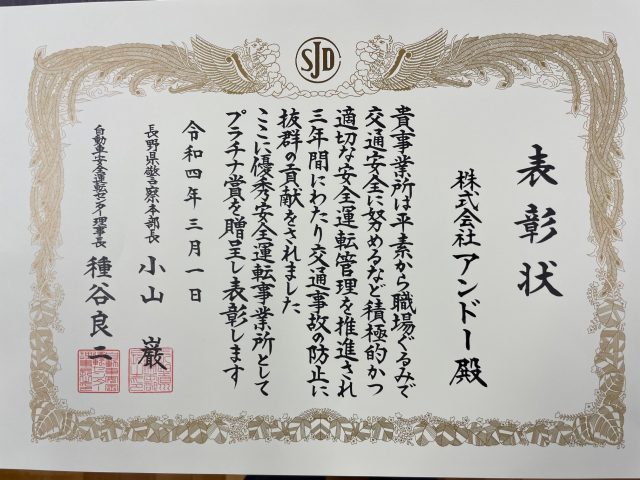 SJD
表彰状
株式会社アンドー殿
貴事業所は平素から職場ぐるみで
交通安全に努めるなど積極的かつ
適切な安全運転管理を推進され
三年間にわたり交通事故の防止に
抜群の貢献をされました
ここに優秀安全運転事業所として
プラチナ賞を贈呈し表彰します
令和四年三月一日
長野県警察本部長 小山 巌
自動車安全運転センター理事長 種谷良二